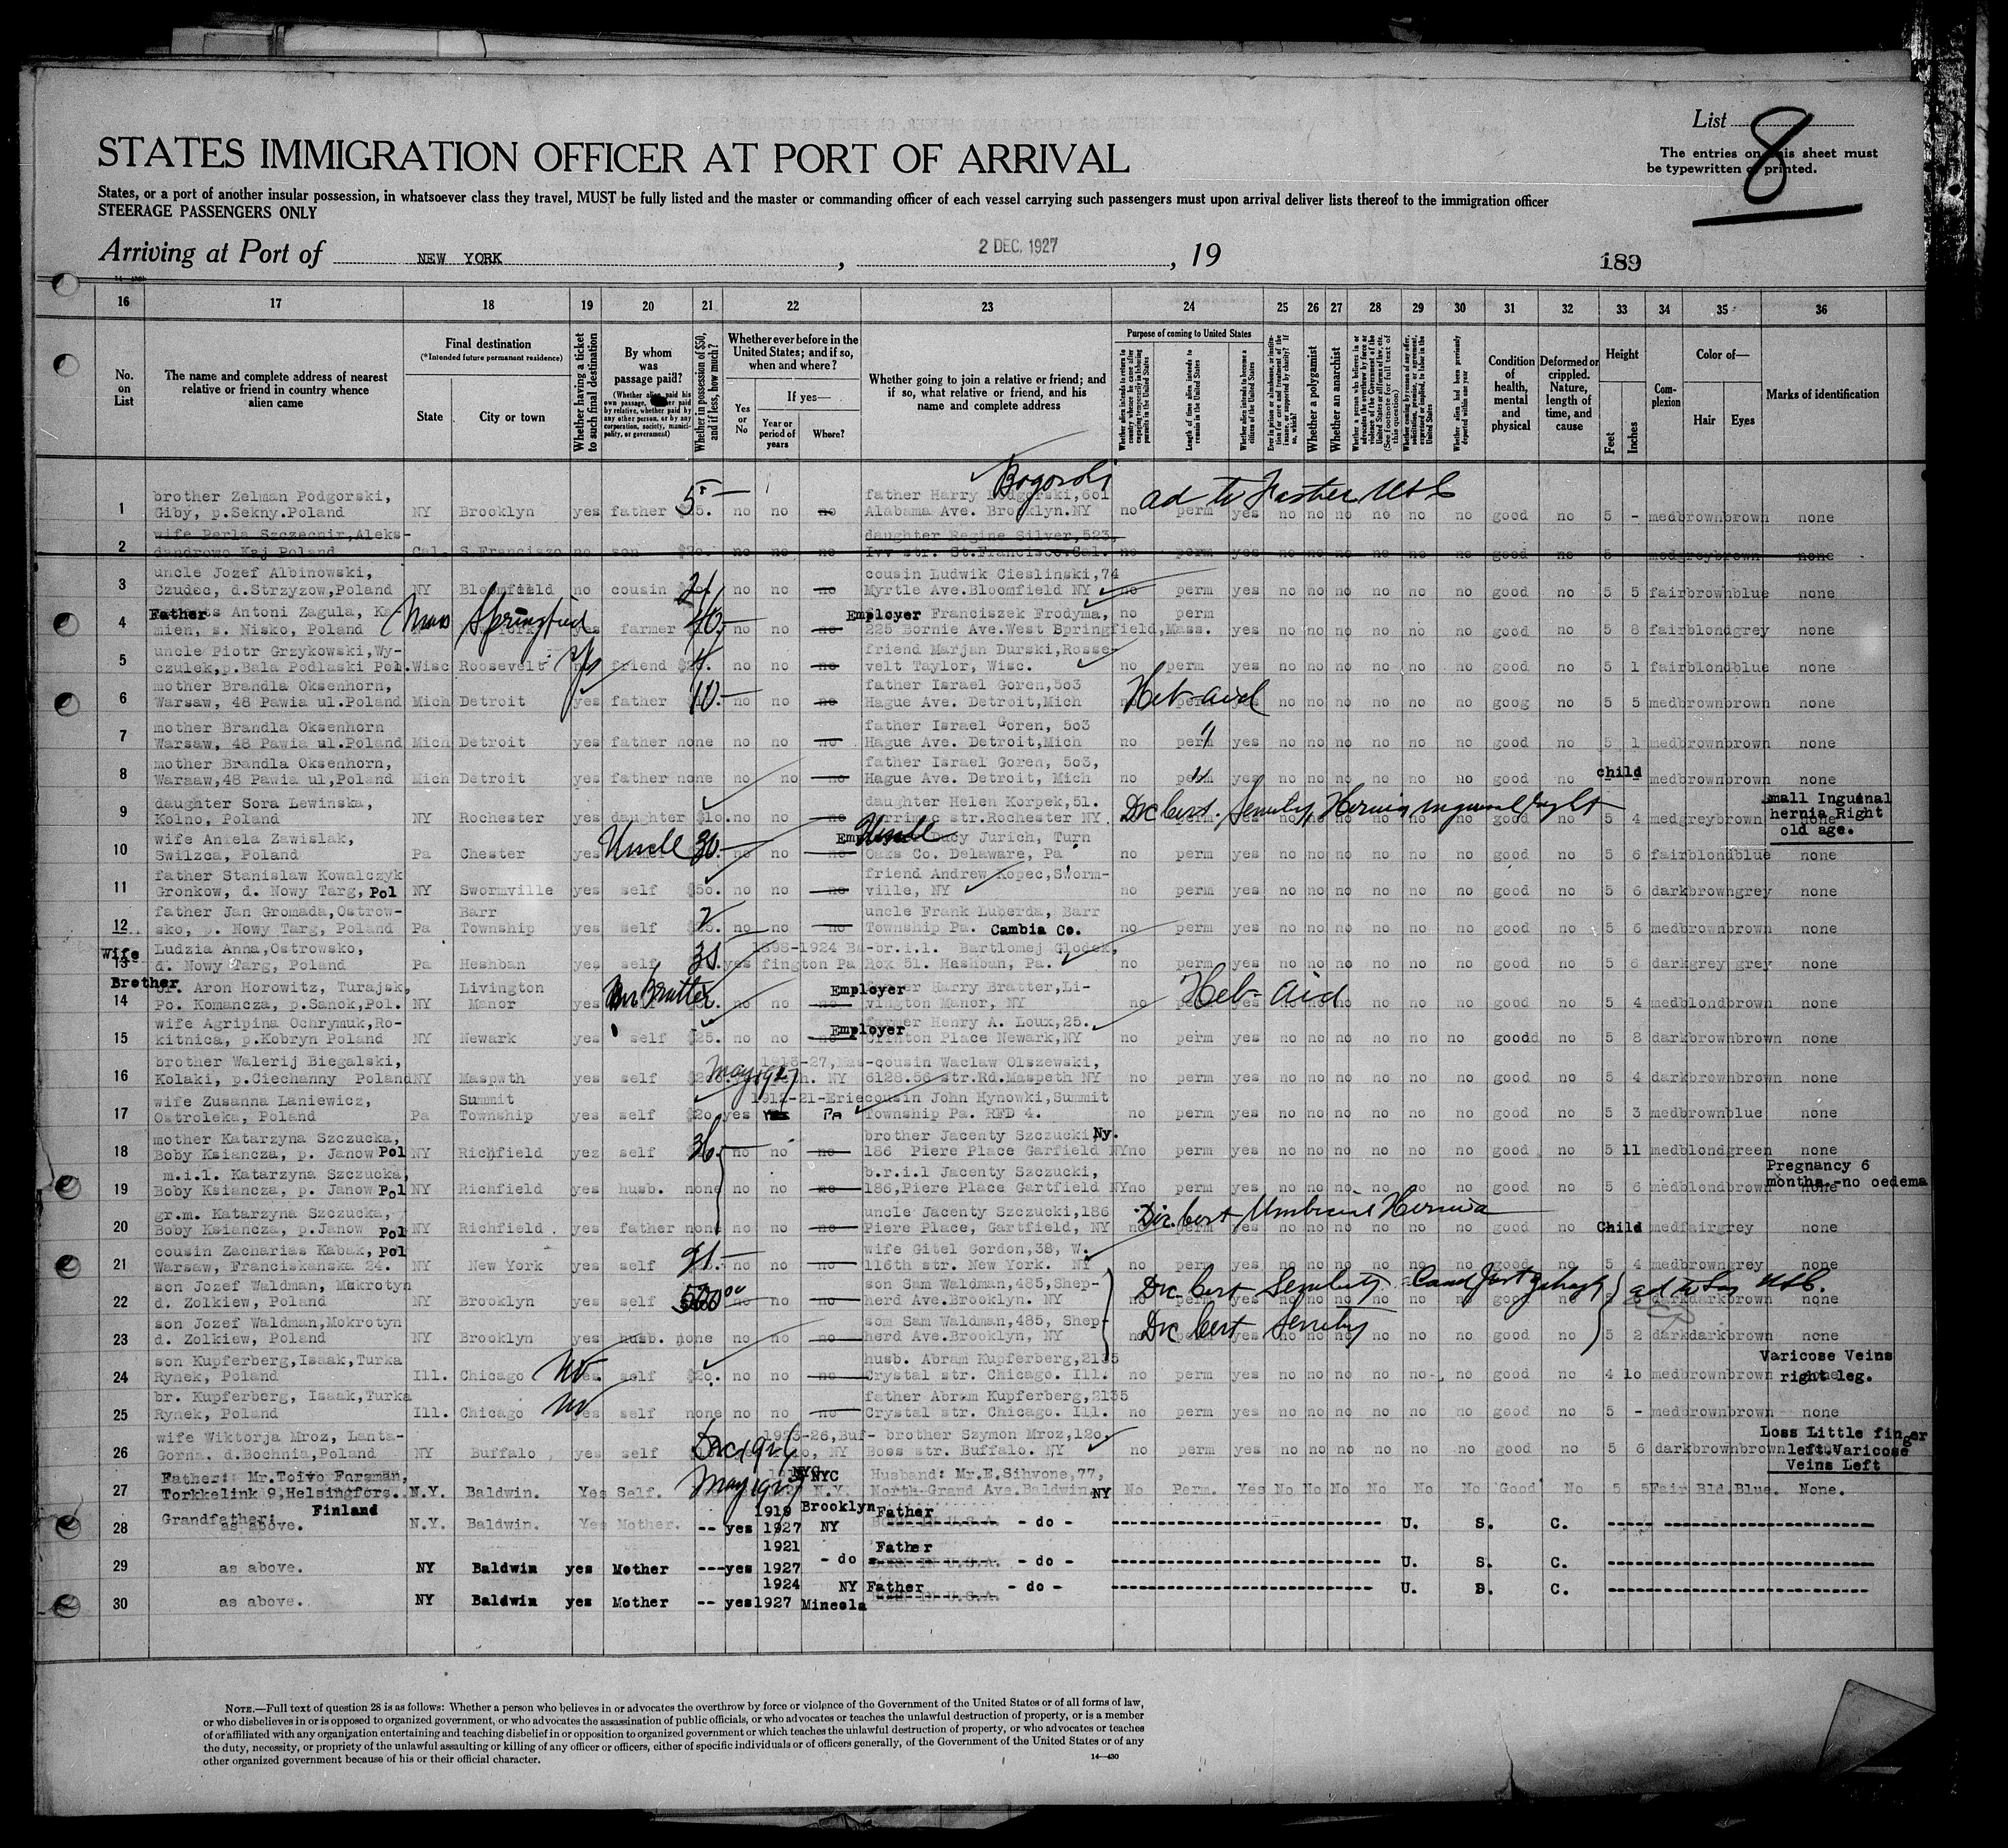 List 8
The entries on this sheet must
be typewritten or printed.
STATES IMMIGRATION OFFICER AT PORT OF ARRIVAL
States, or a port of another insular possession, in whatsoever class they travel, MUST be fully listed and the master or commanding officer of each vessel carrying such passengers must upon arrival deliver lists thereof to the immigration officer
STEERAGE PASSENGERS ONLY
Arriving at Port of NEW YORK , 2 DEC. 1927 , 19
189
16 17 18 19 20 21 22 23 24 25 26 27 28 29 30 31 32 33 34 35 36
No. on List
The name and complete address of nearest relative or friend in country whence alien came
Final destination
(*Intended future permanent residence)
State
City or town
Whether having a ticket to such final destination
By whom was passage paid?
Whether in possession of $50, and if less, how much?
Whether ever before in the United States; and if so, when and where?
Yes or No
If yes—
Year or period of years
Where?
Whether going to join a relative or friend; and if so, what relative or friend, and his name and complete address
Purpose of coming to United States
Length of time alien intends to remain in the United States
Whether alien intends to become a citizen of the United States
Whether a polygamist
Whether an anarchist
Condition of health, mental and physical
Deformed or crippled. Nature, length of time, and cause
Height
Feet
Inches
Complexion
Color of—
Hair
Eyes
Marks of identification
1 brother Zelman Podgorski, father Harry Podgorski, 601
Giby, p.Sekny.Poland NY Brooklyn yes father 5— no no no Alabama Ave. Brooklyn.NY no perm yes no no no no no no good no 5 - med brown brown none
ad to Father USC
2 wife Perla Szczecnir, Aleks- daughter Regine Silver, 523,
dandrowo Kaj Poland Cal. S.Francisco no son $20. no no no Ivy str. St.Francisco.Cal. no perm yes no no no no no no good no 5 - med grey brown none
3 uncle Jozef Albinowski, cousin Ludwik Cieslinski, 74
Czudec, d.Strzyzow, Poland NY Bloomfield no cousin no no no Myrtle Ave.Bloomfield NY no perm yes no no no no no no good no 5 5 fair brown blue none
4 Father Antoni Zagula, Ka- Employer Franciszek Frodyma, no perm
mien, s. Nisko, Poland Mass Springfield yes farmer 40.— no no no 225 Bornie Ave.West Springfield, Mass. yes no no no no no no good no 5 8 fair blond grey none
5 uncle Piotr Grzykowski, Wy- friend Marjan Durski, Rosse-
czulek, p.Bala Podlaski Pol. Wisc Roosevelt yes friend no no no velt Taylor, Wisc. no perm yes no no no no no no good no 5 1 fair blond blue none
6 mother Brandla Oksenhorn, father Israel Goren, 503
Warsaw, 48 Pawia ul.Poland Mich Detroit yes father 10.— no no no Hague Ave. Detroit, Mich Heb-aid perm yes no no no no no no goog no 5 5 med brown brown none
7 mother Brandla Oksenhorn father Israel Goren, 503
Warsaw, 48 Pawia ul.Poland Mich Detroit yes father none no no no Hague Ave. Detroit, Mich no perm yes no no no no no no good no 5 1 med brown brown none
8 mother Brandla Oksenhorn, father Israel Goren, 503,
Warzaw, 48 Pawia ul, Poland Mich Detroit yes father none no no no Hague Ave. Detroit, Mich no perm yes no no no no no no good no child med brown brown none
9 daughter Sora Lewinska, daughter Helen Korpek, 51.
Kolno, Poland NY Rochester yes daughter $10. no no no str.Rochester NY no no no no no no good no 5 4 med grey brown
Small Inguinal
hernia Right
old age.
10 wife Aniela Zawislak, Uncle Dacy Jurich, Turn
Swilzca, Poland Pa Chester yes Uncle 30.— no no no Oaks Co. Delaware, Pa no perm yes no no no no no no good no 5 6 fair blond blue none
11 father Stanislaw Kowalczyk friend Andrew Kopec, Sworm-
Gronkow, d. Nowy Targ, Pol NY Swormville yes self $50. no no no ville, NY no perm yes no no no no no no good no 5 6 dark brown grey none
12 father Jan Gromada, Ostrow- Barr uncle Frank Luberda, Barr
sko, p. Nowy Targ, Poland Pa Township yes self no no no Township Pa. Cambia Co. no perm yes no no no no no no good no 5 6 med brown brown none
13 Wife Ludzia Anna, Ostrowsko, 1898-1924 br.i.l. Bartlomej Glodek,
d. Nowy Targ, Poland Pa Heshban yes self 35. yes fington Pa Box 51. Heshban, Pa. no perm yes no no no no no no good no 5 6 dark grey grey none
14 Brother br. Aron Horowitz, Turajsk, Livington Employer Harry Bratter, Li-
Po. Komancza, p.Sanok, Pol. NY Manor yes Mr Bratter no no no vington Manor, NY no Heb-Aid yes no no no no no no good no 5 4 med blond brown none
15 wife Agripina Ochrymuk, Ro- Employer farmer Henry A. Loux, 25.
kitnica, p.Kobryn Poland NY Newark yes self $25. no no no Clinton Place Newark, NY no perm yes no no no no no no goodd no 5 8 dark brown brown none
16 brother Walerij Biegalski, 1913-27, Mas- cousin Waclaw Olszewski,
Kolaki, p.Ciechanny Poland NY Maspwth yes self May 1927 NY 6128.56 str.Rd.Maspeth NY no perm yes no no no no no no good no 5 4 dark brown brown none
17 wife Zusanna Laniewicz, Summit 1912-21-Erie cousin John Hynowki, Summit
Ostroleka, Poland Pa Township yes self $20 yes Pa Township Pa. RFD 4. no perm yes no no no no no no good no 5 3 med brown blue none
18 mother Katarzyna Szczucka, brother Jacenty Szczucki, Ny.
Boby Ksiancza, p. Janow Pol NY Richfield yez self 36.— no no no 186 Piere Place Garfield NY no perm yes no no no no no no good no 5 11 med blond green none
19 m.i.l. Katarzyna Szczucka, b.r.i.l Jacenty Szczucki,
Boby Ksiancza, p. Janow Pol NY Richfield yes husb. none no no no 186, Piere Place Gartfield NY no perm yes no no no no no no good no 5 6 med blond brown none
Pregnancy 6
months.-no oedema
20 gr.m. Katarzyna Szczucka, uncle Jacenty Szczucki, 186
Boby Ksiancza, p.Janow Pol NY Richfield. yes father none no no no Piere Place, Gartfield, NY no perm yes no no no no no no good no Child med fair grey none
Umbilical Hernia
21 cousin Zacharias Kabak, Pol wife Gitel Gordon, 38, W.
Warsaw, Franciskanska 24. NY New York yes self no no no 116th str. New York. NY no perm yes no no no no no no good no 5 4 med brown grey none
22 son Jozef Waldman, Mokrotyn son Sam Waldman, 485, Shep-
d. Zolkiew, Poland NY Brooklyn yes self 500.00 no no no herd Ave.Brooklyn. NY dark brown none
ad to Son USC.
23 son Jozef Waldman, Mokrotyn som Sam Waldman, 485, Shep-
d. Zolkiew, Poland NY Brooklyn yes husb. none no no no herd Ave.Brooklyn, NY no perm yes no no no no no no good no 5 2 dark dark brown none
24 son Kupferberg, Isaak, Turka husb. Abram Kupferberg, 2135
Rynek, Poland Ill. Chicago No self $20. no no no Crystal str. Chicago. Ill. no perm yes no no no no no no good no 4 10 med brown brown none
Varicose Veins
right leg.
25 br. Kupferberg, Isaak, Turka father Abram Kupferberg, 2135
Rynek, Poland Ill. Chicago No yes self none no no no Crystal str. Chicago. Ill. no perm yes no no no no no no good no 5 - med brown brown none
26 wife Wiktorja Mroz, Lanta- 1923-26, Buf- brother Szymon Mroz, 120.
Gorna. d.Bochnia, Poland NY Buffalo yes self Dec 1926 NY Boss str. Buffalo. NY no perm yes no no no no no no good no 5 6 dark brown brown
Loss Little finger
left.Varicose
Veins Left
27 Father: Mr.Toivo Forsman, NYC Husband: Mr.E.Sihvone, 77,
Torkkelink 9, Helsingfors. N.Y. Baldwin. Yes Self. May 1927 N.Y. North-Grand Ave.Baldwin NY No Perm. Yes No No No No No No Good No 5 5 Fair Bld. Blue. None.
Finland
28 Grandfather: 1919 Brooklyn Father
as above. N.Y. Baldwin. Yes Mother. -- yes 1927 NY BORN IN U.S.A. - do - U. S. C.
29 1921 Father
as above. NY Baldwin yes Mother --- yes 1927 - do - BORN IN U.S.A. - do - U. S. C.
30 1924 NY Father - do - U. S. C.
as above. NY Baldwin yes Mother -- yes 1927 Mineola BORN IN U.S.A.
NOTE.—Full text of question 28 is as follows: Whether a person who believes in or advocates the overthrow by force or violence of the Government of the United States or of all forms of law,
or who disbelieves in or is opposed to organized government, or who advocates the assassination of public officials, or who advocates or teaches the unlawful destruction of property, or is a member
of or affiliated with any organization entertaining and teaching disbelief in or opposition to organized government or which teaches the unlawful destruction of property, or who advocates or teaches
the duty, necessity, or propriety of the unlawful assaulting or killing of any officer or officers, either of specific individuals or of officers generally, of the Government of the United States or of any
other organized government because of his or their official character.
14—430